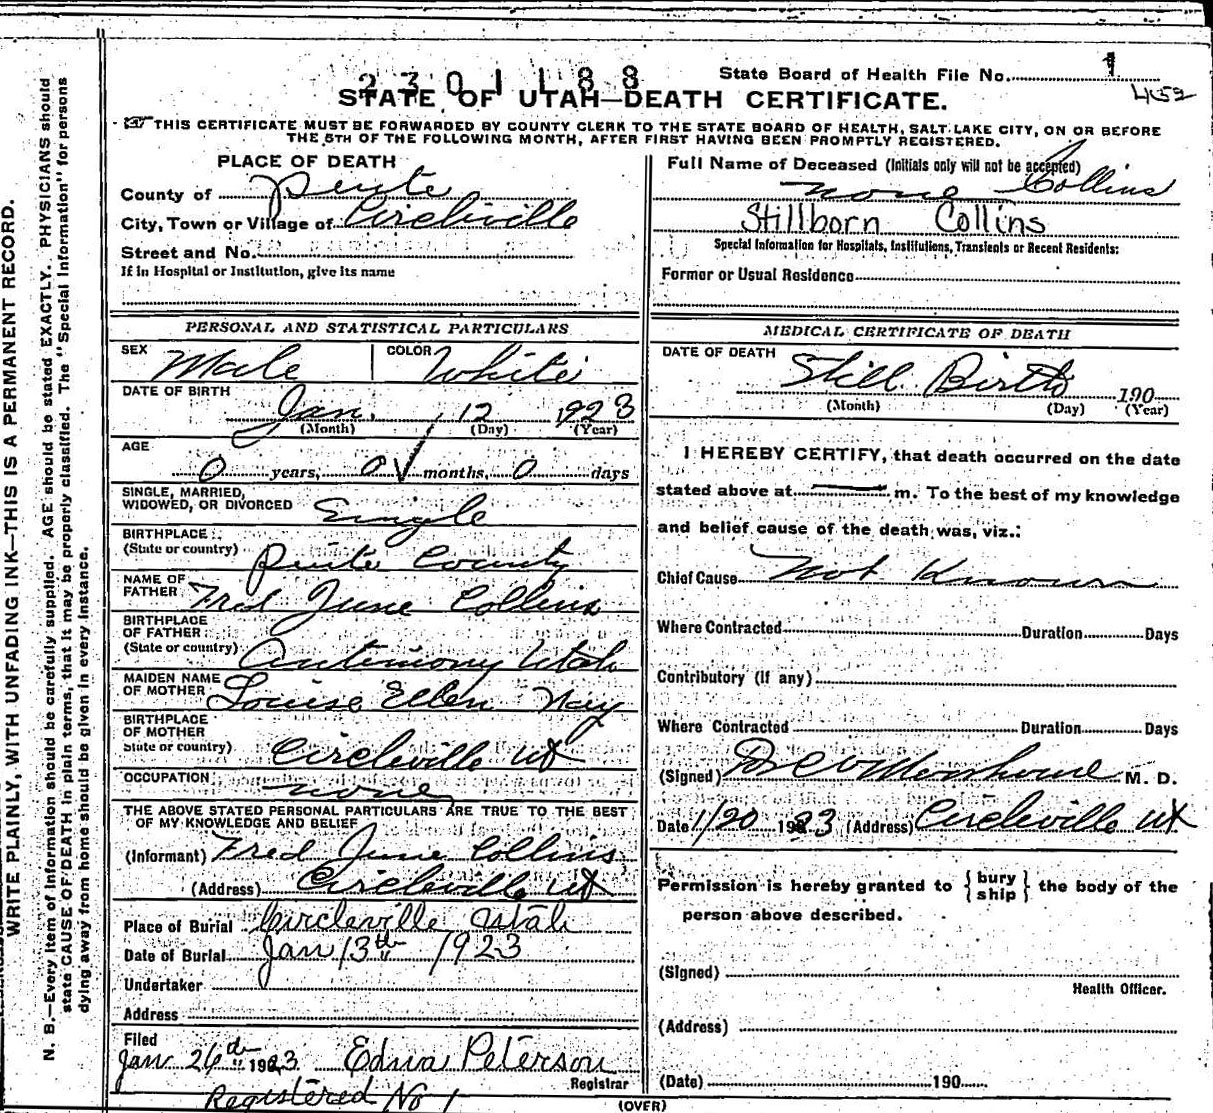 2301188
State Board of Health File No. 1
452
STATE OF UTAH—DEATH CERTIFICATE.
THIS CERTIFICATE MUST BE FORWARDED BY COUNTY CLERK TO THE STATE BOARD OF HEALTH, SALT LAKE CITY, ON OR BEFORE
THE 5TH OF THE FOLLOWING MONTH, AFTER FIRST HAVING BEEN PROMPTLY REGISTERED.
WRITE PLAINLY, WITH UNFADING INK—THIS IS A PERMANENT RECORD.
N. B.—Every item of information should be carefully supplied. AGE should be stated EXACTLY. PHYSICIANS should
state CAUSE OF DEATH in plain terms, that it may be properly classified. The "Special Information" for persons
dying away from home should be given in every instance.
PLACE OF DEATH
County of Peute
City, Town or Village of Circleville
Street and No.
If in Hospital or Institution, give its name
PERSONAL AND STATISTICAL PARTICULARS
SEX Male COLOR White
DATE OF BIRTH
Jan. 12 1923
(Month) (Day) (Year)
AGE
0 years, 0 months, 0 days
SINGLE, MARRIED,
WIDOWED, OR DIVORCED Single
BIRTHPLACE
(State or country) Piute County
NAME OF
FATHER Fred June Collins
BIRTHPLACE
OF FATHER
(State or country) Antimony Utah
MAIDEN NAME
OF MOTHER Louise Ellen Nay
BIRTHPLACE
OF MOTHER
State or country) Circleville Ut
OCCUPATION none
THE ABOVE STATED PERSONAL PARTICULARS ARE TRUE TO THE BEST
OF MY KNOWLEDGE AND BELIEF
(Informant) Fred June Collins
(Address) Circleville Ut
Place of Burial Circleville Utah
Date of Burial Jan 13th 1923
Undertaker
Address
Filed
Jan 26th 1923 Edna Peterson
Registrar
Registered No 1
Full Name of Deceased (Initials only will not be accepted)
none Collins
Stillborn Collins
Special Information for Hospitals, Institutions, Transients or Recent Residents:
Former or Usual Residence
MEDICAL CERTIFICATE OF DEATH
DATE OF DEATH
Still Birth 190
(Month) (Day) (Year)
I HEREBY CERTIFY, that death occurred on the date
stated above at m. To the best of my knowledge
and belief cause of the death was, viz.:
Chief Cause Not Known
Where Contracted Duration Days
Contributory (if any)
Where Contracted Duration Days
(Signed) M. D.
Date 1/20 1923 (Address) Circleville Ut
Permission is hereby granted to { bury
ship } the body of the
person above described.
(Signed)
Health Officer.
(Address)
(Date) 190
(OVER)